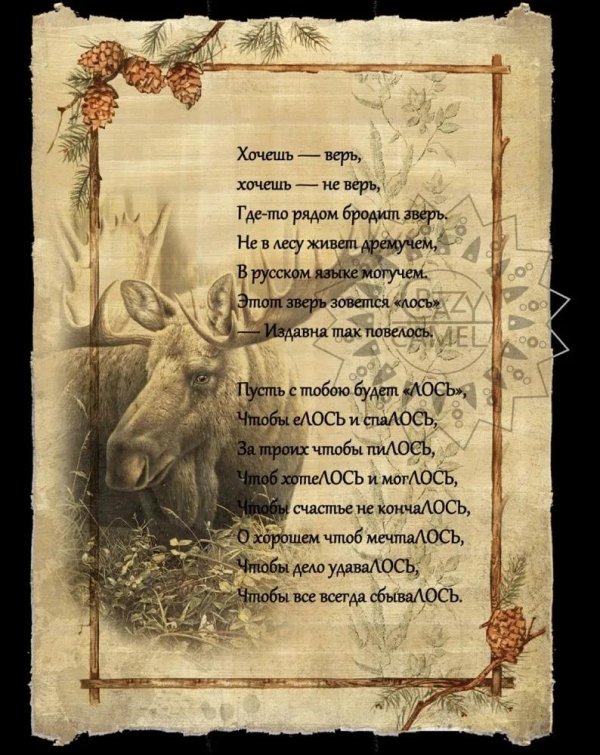 Хочешь — верь,
хочешь — не верь,
Где-то рядом бродит зверь.
Не в лесу живет дремучем,
В русском языке могучем.
Этот зверь зовется «лось»
— Издавна так повелось.
Пусть с тобою будет «ЛОСЬ»,
Чтобы еЛОСЬ и спаЛОСЬ,
За троих чтобы пиЛОСЬ,
Чтоб хотеЛОСЬ и могЛОСЬ,
Чтобы счастье не кончаЛОСЬ,
О хорошем чтоб мечтаЛОСЬ,
Чтобы дело удаваЛОСЬ,
Чтобы все всегда сбываЛОСЬ.
CRAZY
CAMEL